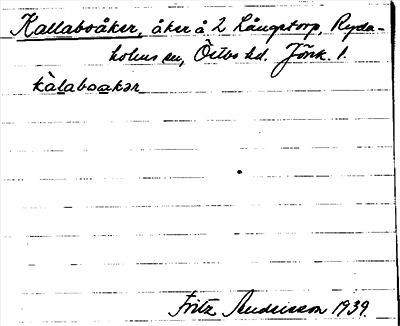 Kallaboåker, åker å 2 Långstorp, Ryda-
holms sn, Östbo hd. Jönk. l.
kàlaboakər
Fritz Andersson 1939.